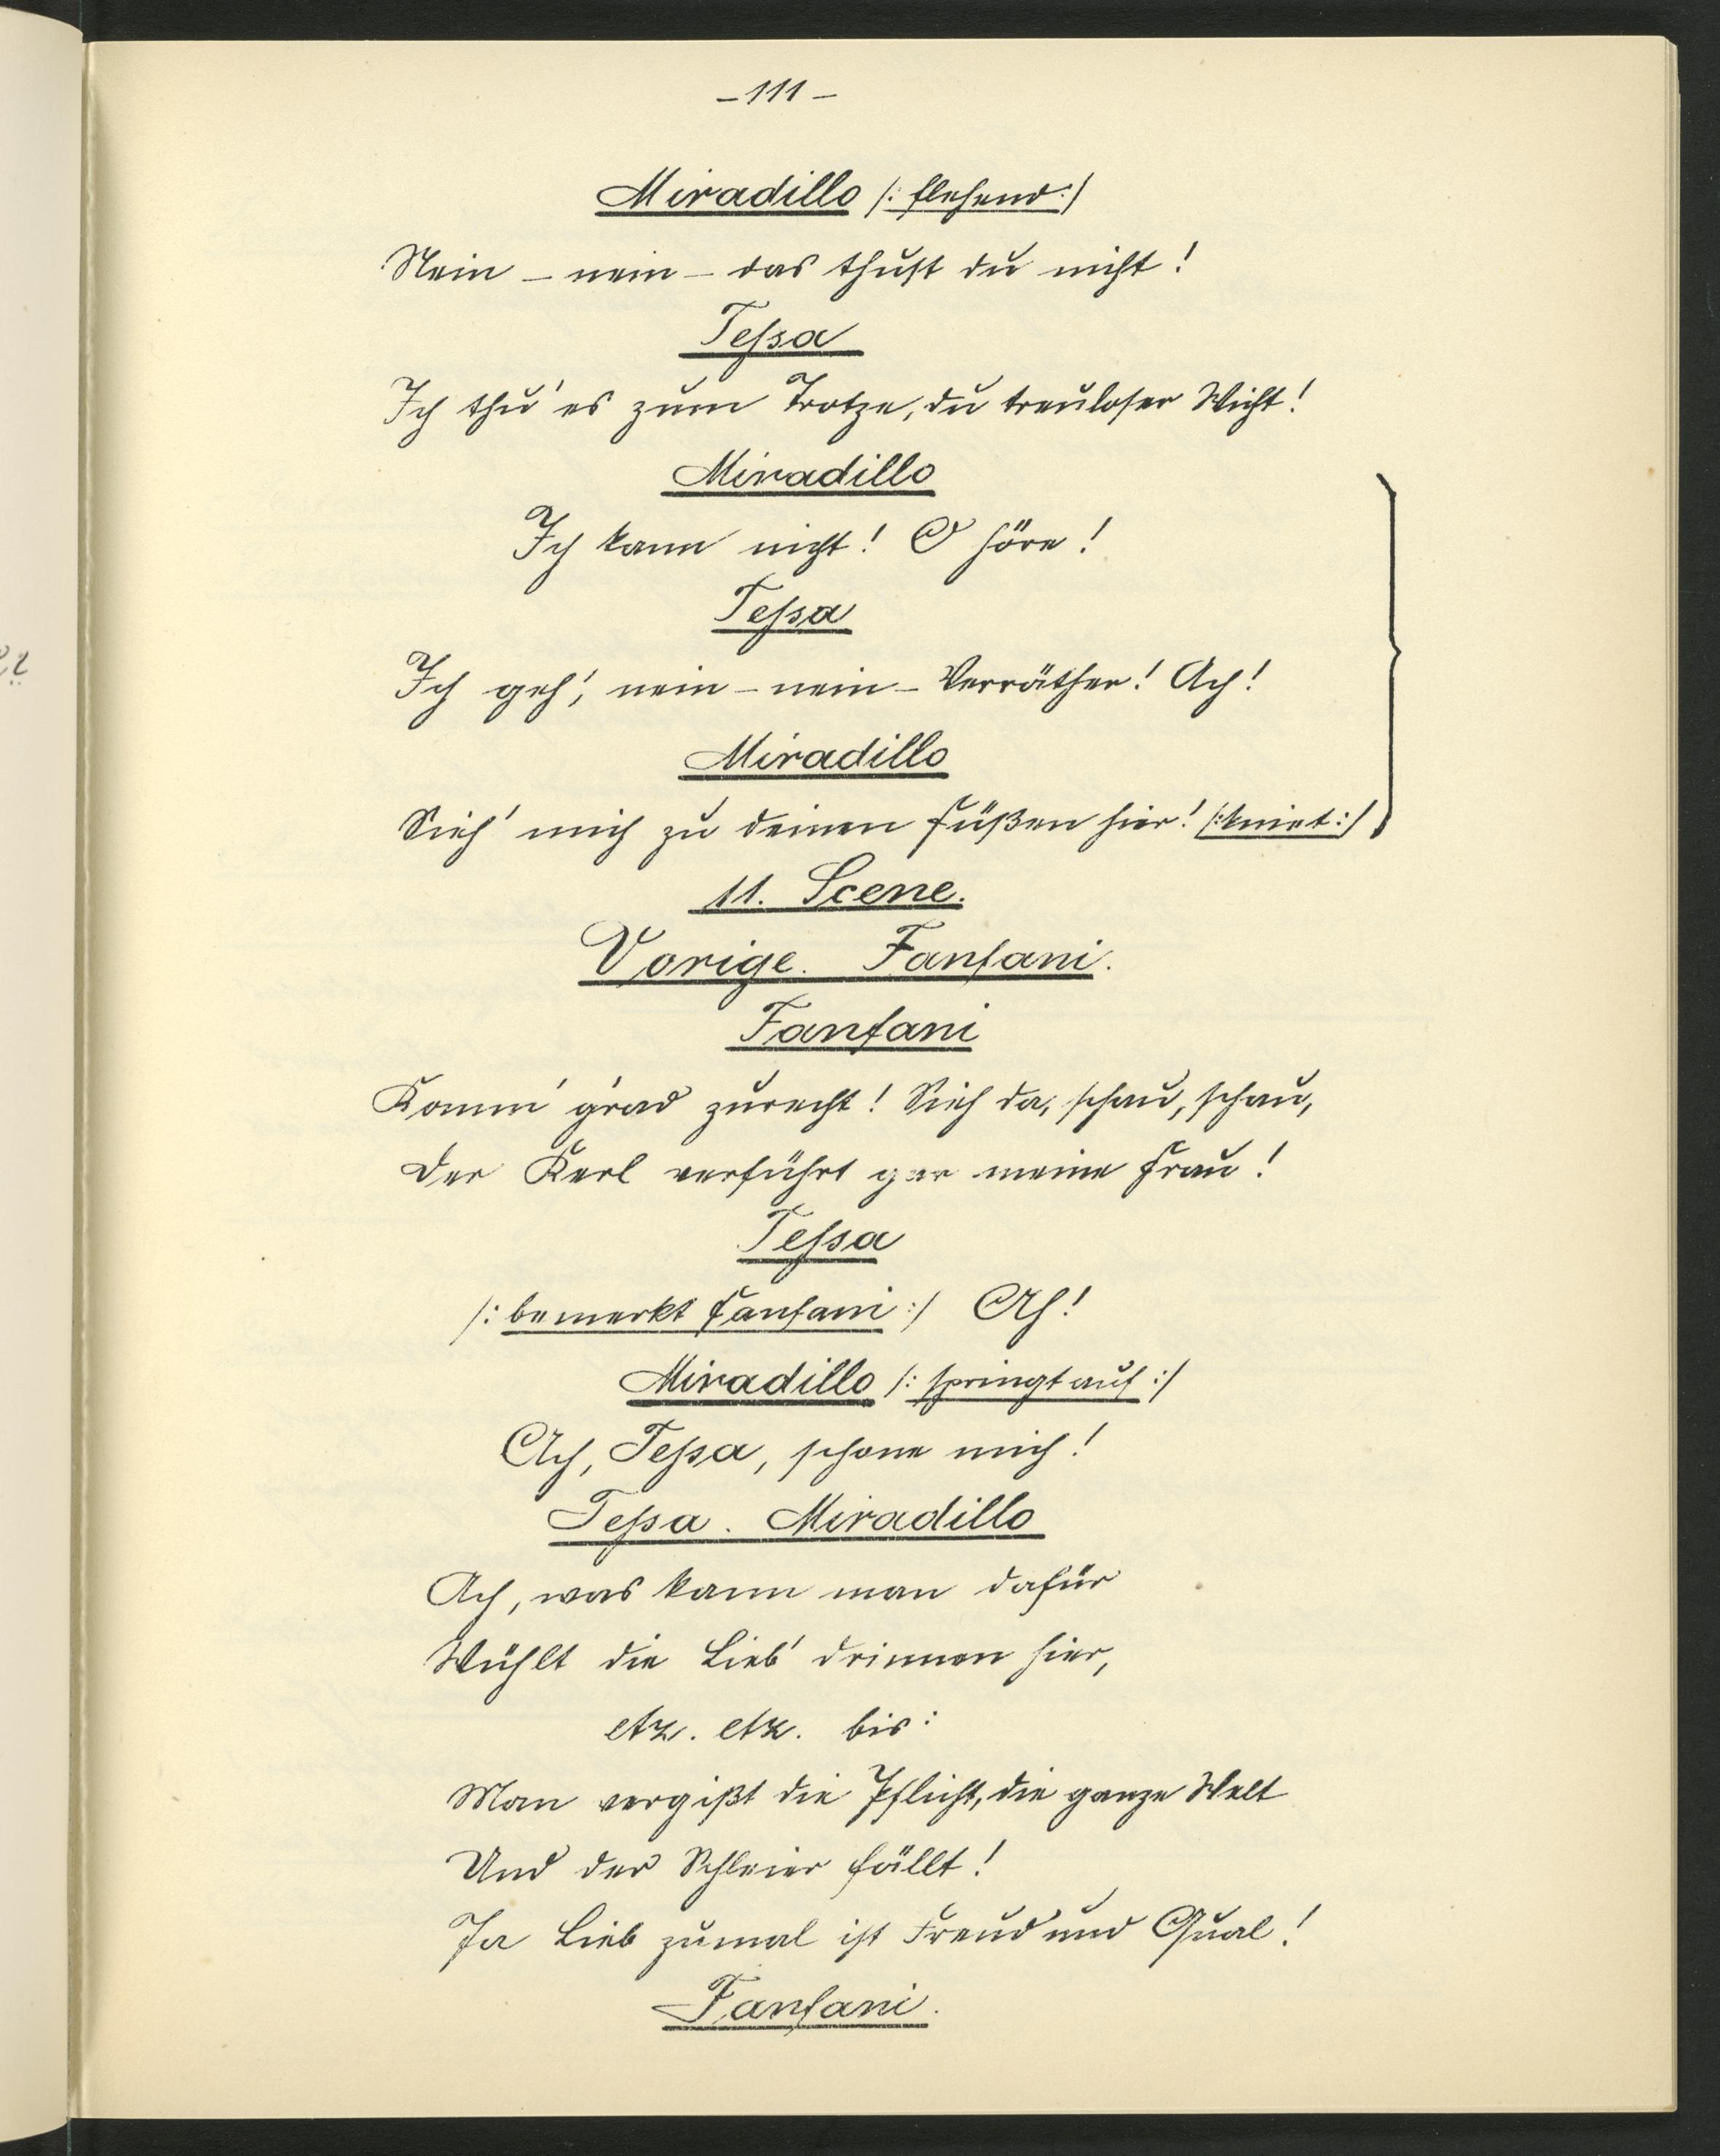 – 111 –
Miradillo /: flehend :/
Nein – nein – das thust du nicht!
Tessa
Ich thu' es zum Trotze, du treuloser Wicht!
Miradillo
Ich kann nicht! O höre!
Tessa
Ich geh', nein – nein – Verräther! Ach!
Miradillo
Sieh' mich zu deinen Füßen hier! /: kniet :/
11. Scene.
Vorige. Fanfani.
Fanfani
Komm' g'rad zurecht! Sieh da, schau, schau,
Der Kerl verführt gar meine Frau!
Tessa
/: bemerkt Fanfani :/ Ah!
Miradillo /: springt auf :/
Ach, Tessa, schone mich!
Tessa. Miradillo
Ach, was kann man dafür
Wühlt die Lieb' drinnen hier,
etz. etz. bis:
Man vergißt die Pflicht, die ganze Welt
Und der Schleier fällt!
Ja Lieb zumal ist Freud und Qual!
Fanfani.